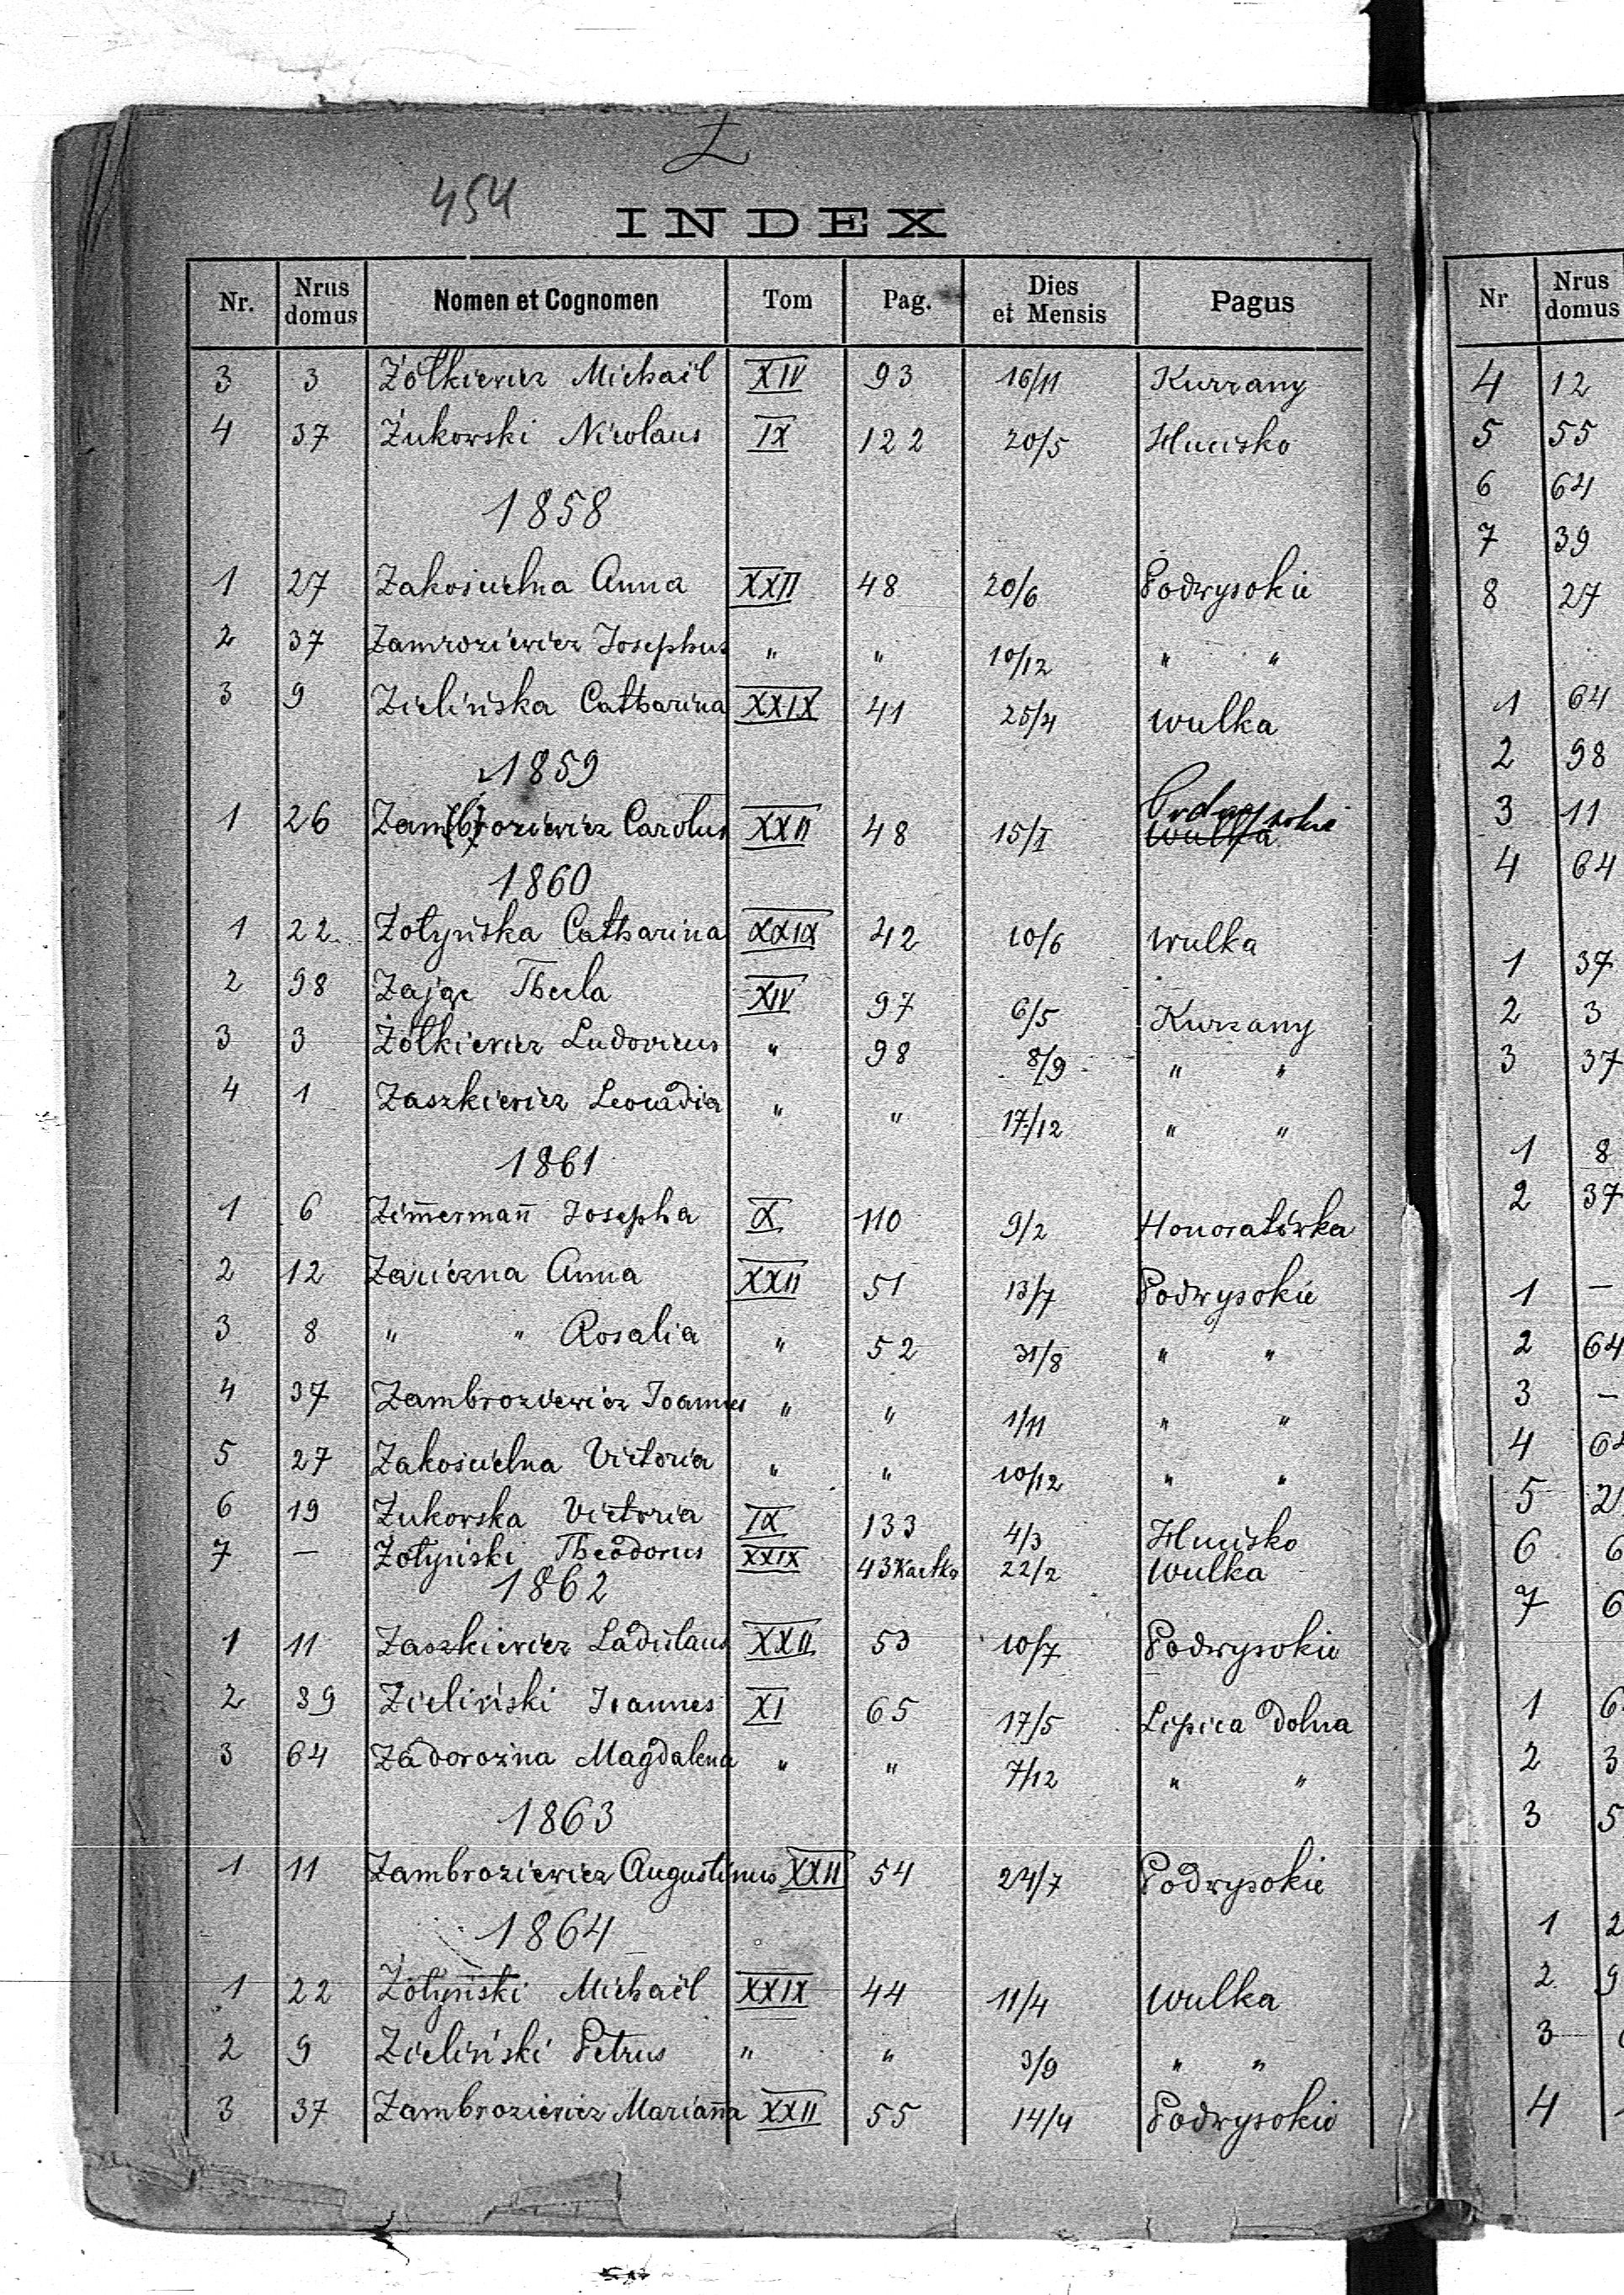 Z
454
INDEX
Nr. Nrus domus Nomen et Cognomen Tom Pag. Dies et Mensis Pagus
3 3 Żółkiewicz Michaël XIV 93 16/11 Kurzany
4 37 Żukowski Nicolaus IX 122 20/5 Hucisko
1858
1 27 Zakościelna Anna XXII 48 20/6 Podwysokie
2 37 Zamroziewicz Josephus " " 10/12 " "
3 9 Zielińska Catharina XXIX 41 25/4 Wulka
1859
1 26 Zam(b)roziewicz Carolus XXII 48 15/I Podwysokie Wulka
1860
1 22 Żołyńska Catharina XXIX 42 10/6 Wulka
2 98 Zając Thecla XIV 97 6/5 Kurzany
3 3 Żółkiewicz Ludovicus " 98 8/9 " "
4 1 Zaszkiewicz Leocadia " " 17/12 " "
1861
1 6 Zim̄erman̄ Josepha X 110 9/2 Honoratówka
2 12 Zariczna Anna XXII 51 13/7 Podwysokie
3 8 " " Rosalia " 52 31/8 " "
4 37 Zambroziewicz Joannes " " 1/11 " "
5 27 Zakościelna Victoria " " 10/12 " "
6 19 Żukowska Victoria IX 133 4/3 Hucisko
7 — Żołyński Theodorus XXIX 43 Kartka 22/2 Wulka
1862
1 11 Zaszkiewicz Ladislaus XXII 53 10/7 Podwysokie
2 39 Zieliński Joannes XI 65 17/5 Lipica dolna
3 64 Zadorożna Magdalena " " 7/12 " "
1863
1 11 Zambroziewicz Augustinus XXII 54 24/7 Podwysokie
1864
1 22 Żołyński Michaël XXIX 44 11/4 Wulka
2 9 Zieliński Petrus " " 3/9 " "
3 37 Zambroziewicz Marian̄a XXII 55 14/4 Podwysokie
Nr Nrus domus
4 12
5 55
6 64
7 39
8 27
1 64
2 98
3 11
4 64
1 37
2 3
3 37
1 8
2 37
1 —
2 64
3 —
4
5
6
7
1
2
3
1
2
3
4